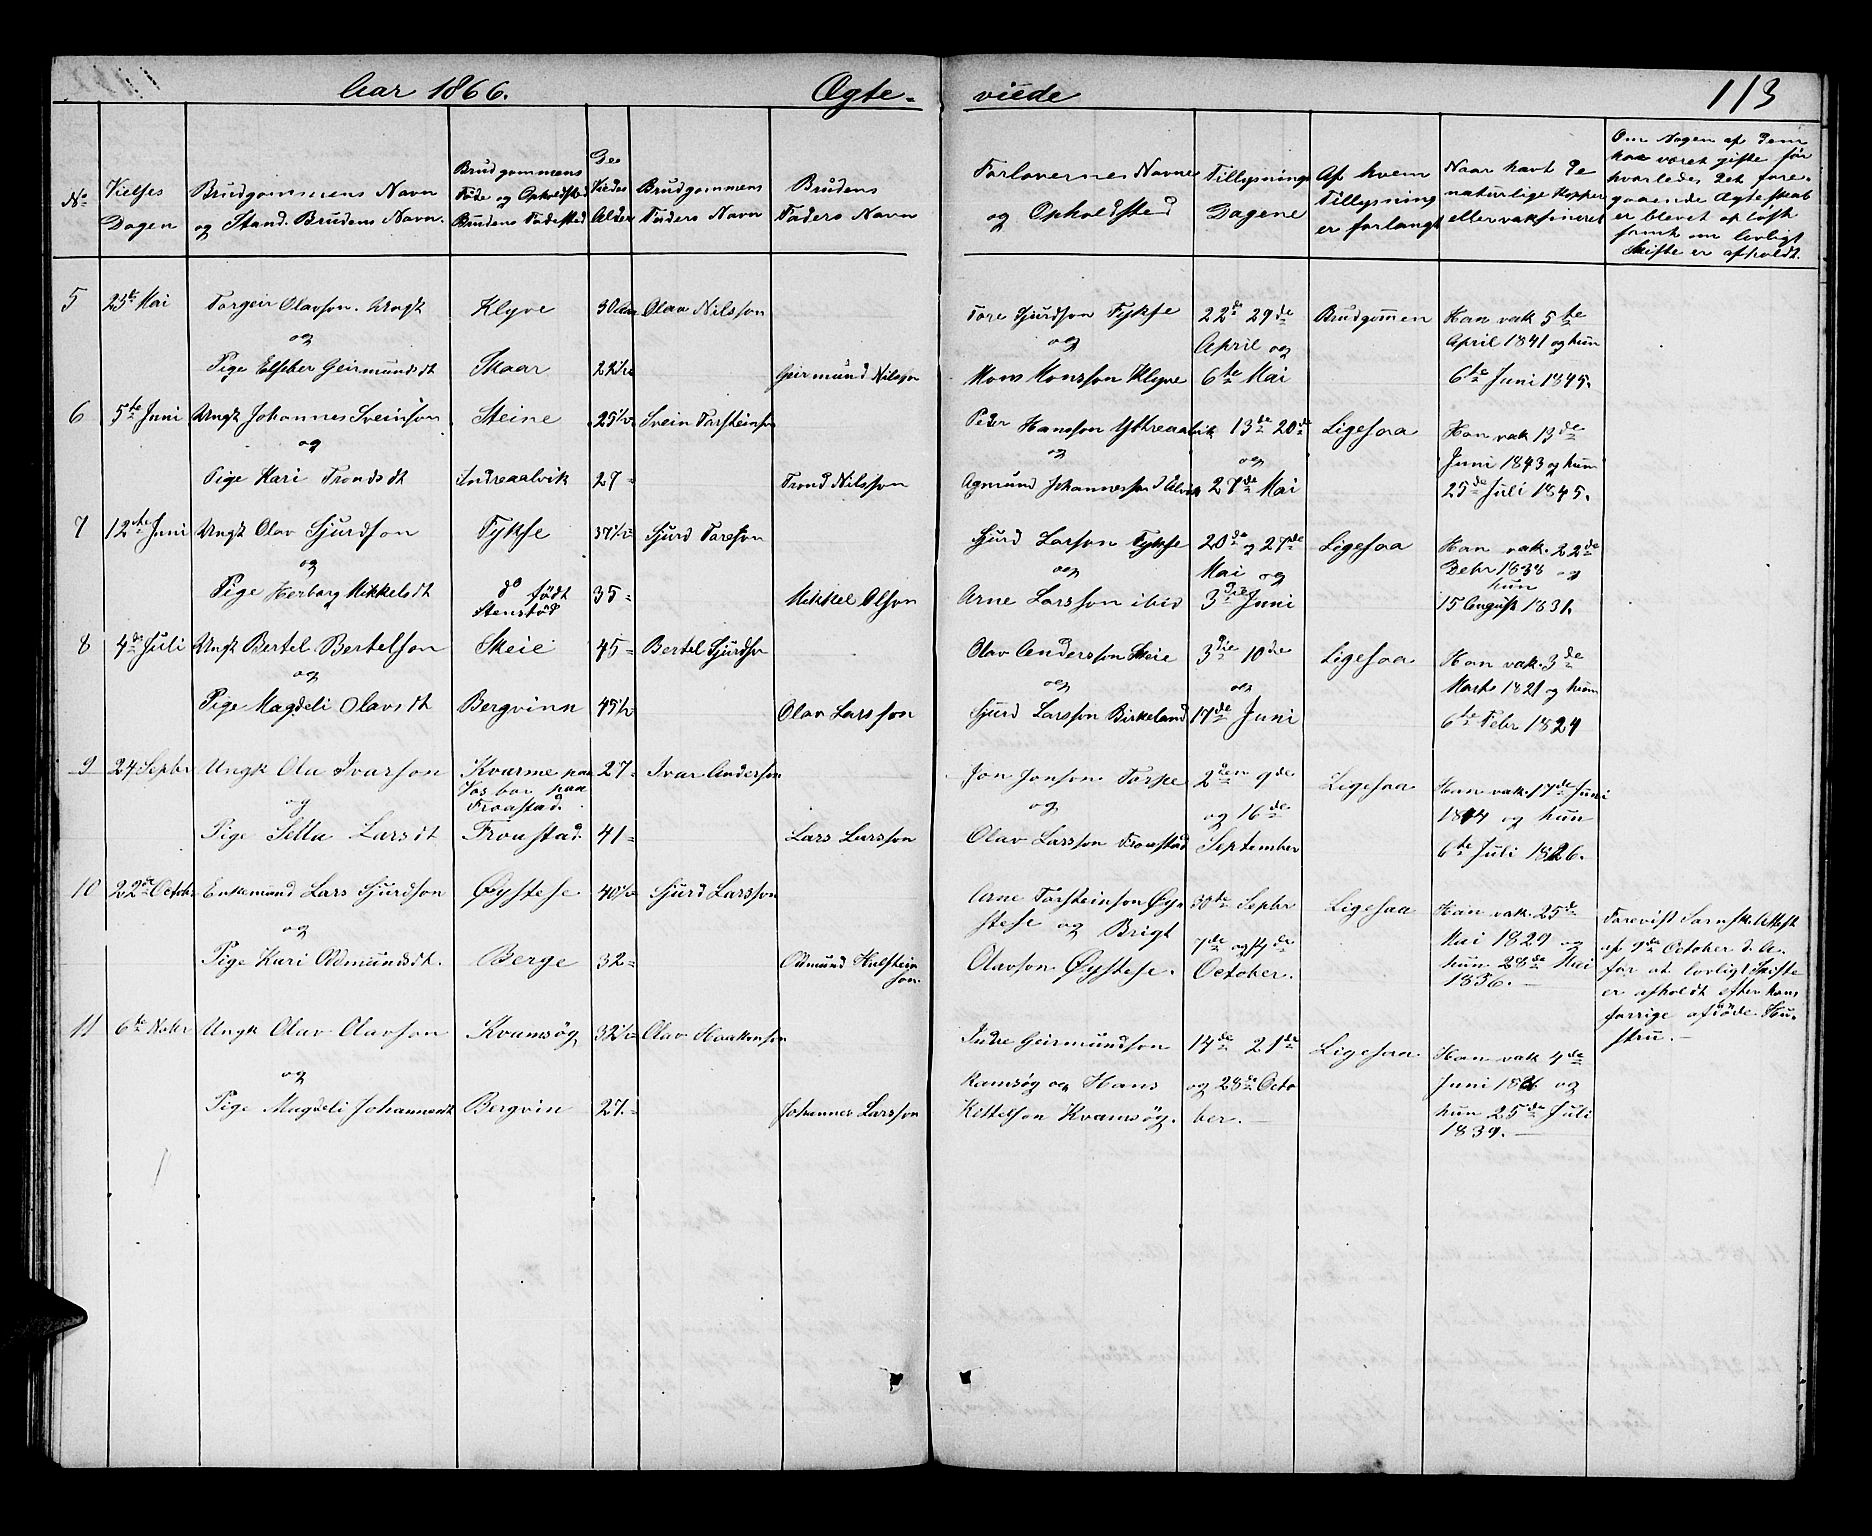 Aar 1866.
Ægte-
viede
113
No
Vielses
Dagen
Brudgommens Navn
og Stand. Brudens Navn.
Brudgommens
Føde og Opholdsted
Brudens Fødested
De
Viedes
Alder
Brudgommens
Faders Navn
Brudens
Faders Navn
Forlovernes Navne
og Opholdsted
Tillysnings
Dagene
Af hvem
Tillysning
er forlangt
Naar havt De
naturlige Kopper
eller vaksineret
Om Nogen af Dem
har været gifte før
hvorledes Det fore-
gaaende Ægteskab
er blevet opløst
samt om lovligt
Skifte er afholdt.
5
25de Mai
Torgeir Olavson. Ungk
og
Pige Elseber Geirmundsdt
Klyve
Skaar
30 Aar
22½
Olav Nilsson
Geirmund Nilson
Tore Sjurdson Fykse
og
Mons Monsson Klyve
22de 29de
April og
6te Mai
Brudgommen
Han vak 5te
April 1841 og hun
6te Juni 1845.
6
5te Juni
Ungk Johannes Sveinson
og
Pige Kari Trondsdt
Steine
Indreaalvik
25½
27-
Svein Torsteinson
Trond Nilsson
Peder Hansson Ytreaalvik
og
Agmund Johannesson Aalvik
13de 20de
og
27de Mai
Ligesaa
Han vak 13de
Juni 1843 og hun
25de Juli 1845.
7
12te Juni
Ungk Olav Sjurdson
og
Pige Herborg Mikkelsdt
Fykse
do født
Stenstød
37½
35-
Sjurd Toreson
Mikkel Olson
Sjurd Larson Fykse
og
Arne Larsson ibid
20de og 27de
Mai og
3die Juni
Ligesaa
Han vak. 22de
Debr 1838 og
hun
15 August 1831.
8
4de Juli
Ungk Bertel Bertelson
og
Pige Magdeli Olavsdt
Skeie
Bergvinn
45-
45½
Bertel Sjurdson
Olav Larsson
Olav Andersson Skeie
og
Sjurd Larsson Birkeland
3die 10de
og
17de Juni
Ligesaa
Han vak. 3de
Marts 1821 og hun
6te Febr 1824
9
24 Sepbr
Ungk Ola Ivarson
og
Pige Sella Larsdt
Kvarme paa
Vos bor paa
Froastad.
Froastad.
27-
41-
Ivar Anderson
Lars Larsson
Jon Jonson Torpe
og
Olav Larsson Froastad
2den 9de
og 16de
September
Ligesaa
Han vak. 17de Juni
1844 og hun
6te Juli 1826.
10
22de Octobr
Enkemand Lars Sjurdson
og
Pige Kari Odmundsdt.
Øystese
Berge
40½
32-
Sjurd Larsson
Odmund Halstein
son.
Arne Torsteinson Øy-
stese og Brigt
Olavson Øystese.
30de Sepbr
7de og 14de
October.
Ligesaa
Han vak. 25de
Mai 1829 og
hun 28de Mai
1836.
Forevist Sarnsk. Attest
af 9de October d. A.
for at lovligt Skifte
er afholdt efter hans
forrige afdøde Hu-
stru.
11
6te Nobr
Ungk Olav Olavson
og
Pige Magdeli Johannesdt
Kvamsøg
Bergvin
32½
27-
Olav Haakonson
Johannes Larsson
Indre Geirmundson
Kamsøg og Hans
Kittelson Kvamsøg.
14de 21de
og 28de Octo
ber.
Ligesaa
Han vak 4de
Juni og
hun 25de Juli
1839.